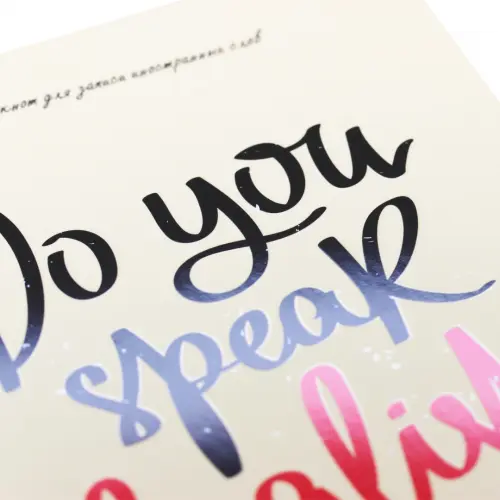 кнот для записи иностранных слов
Do you
speak
glish